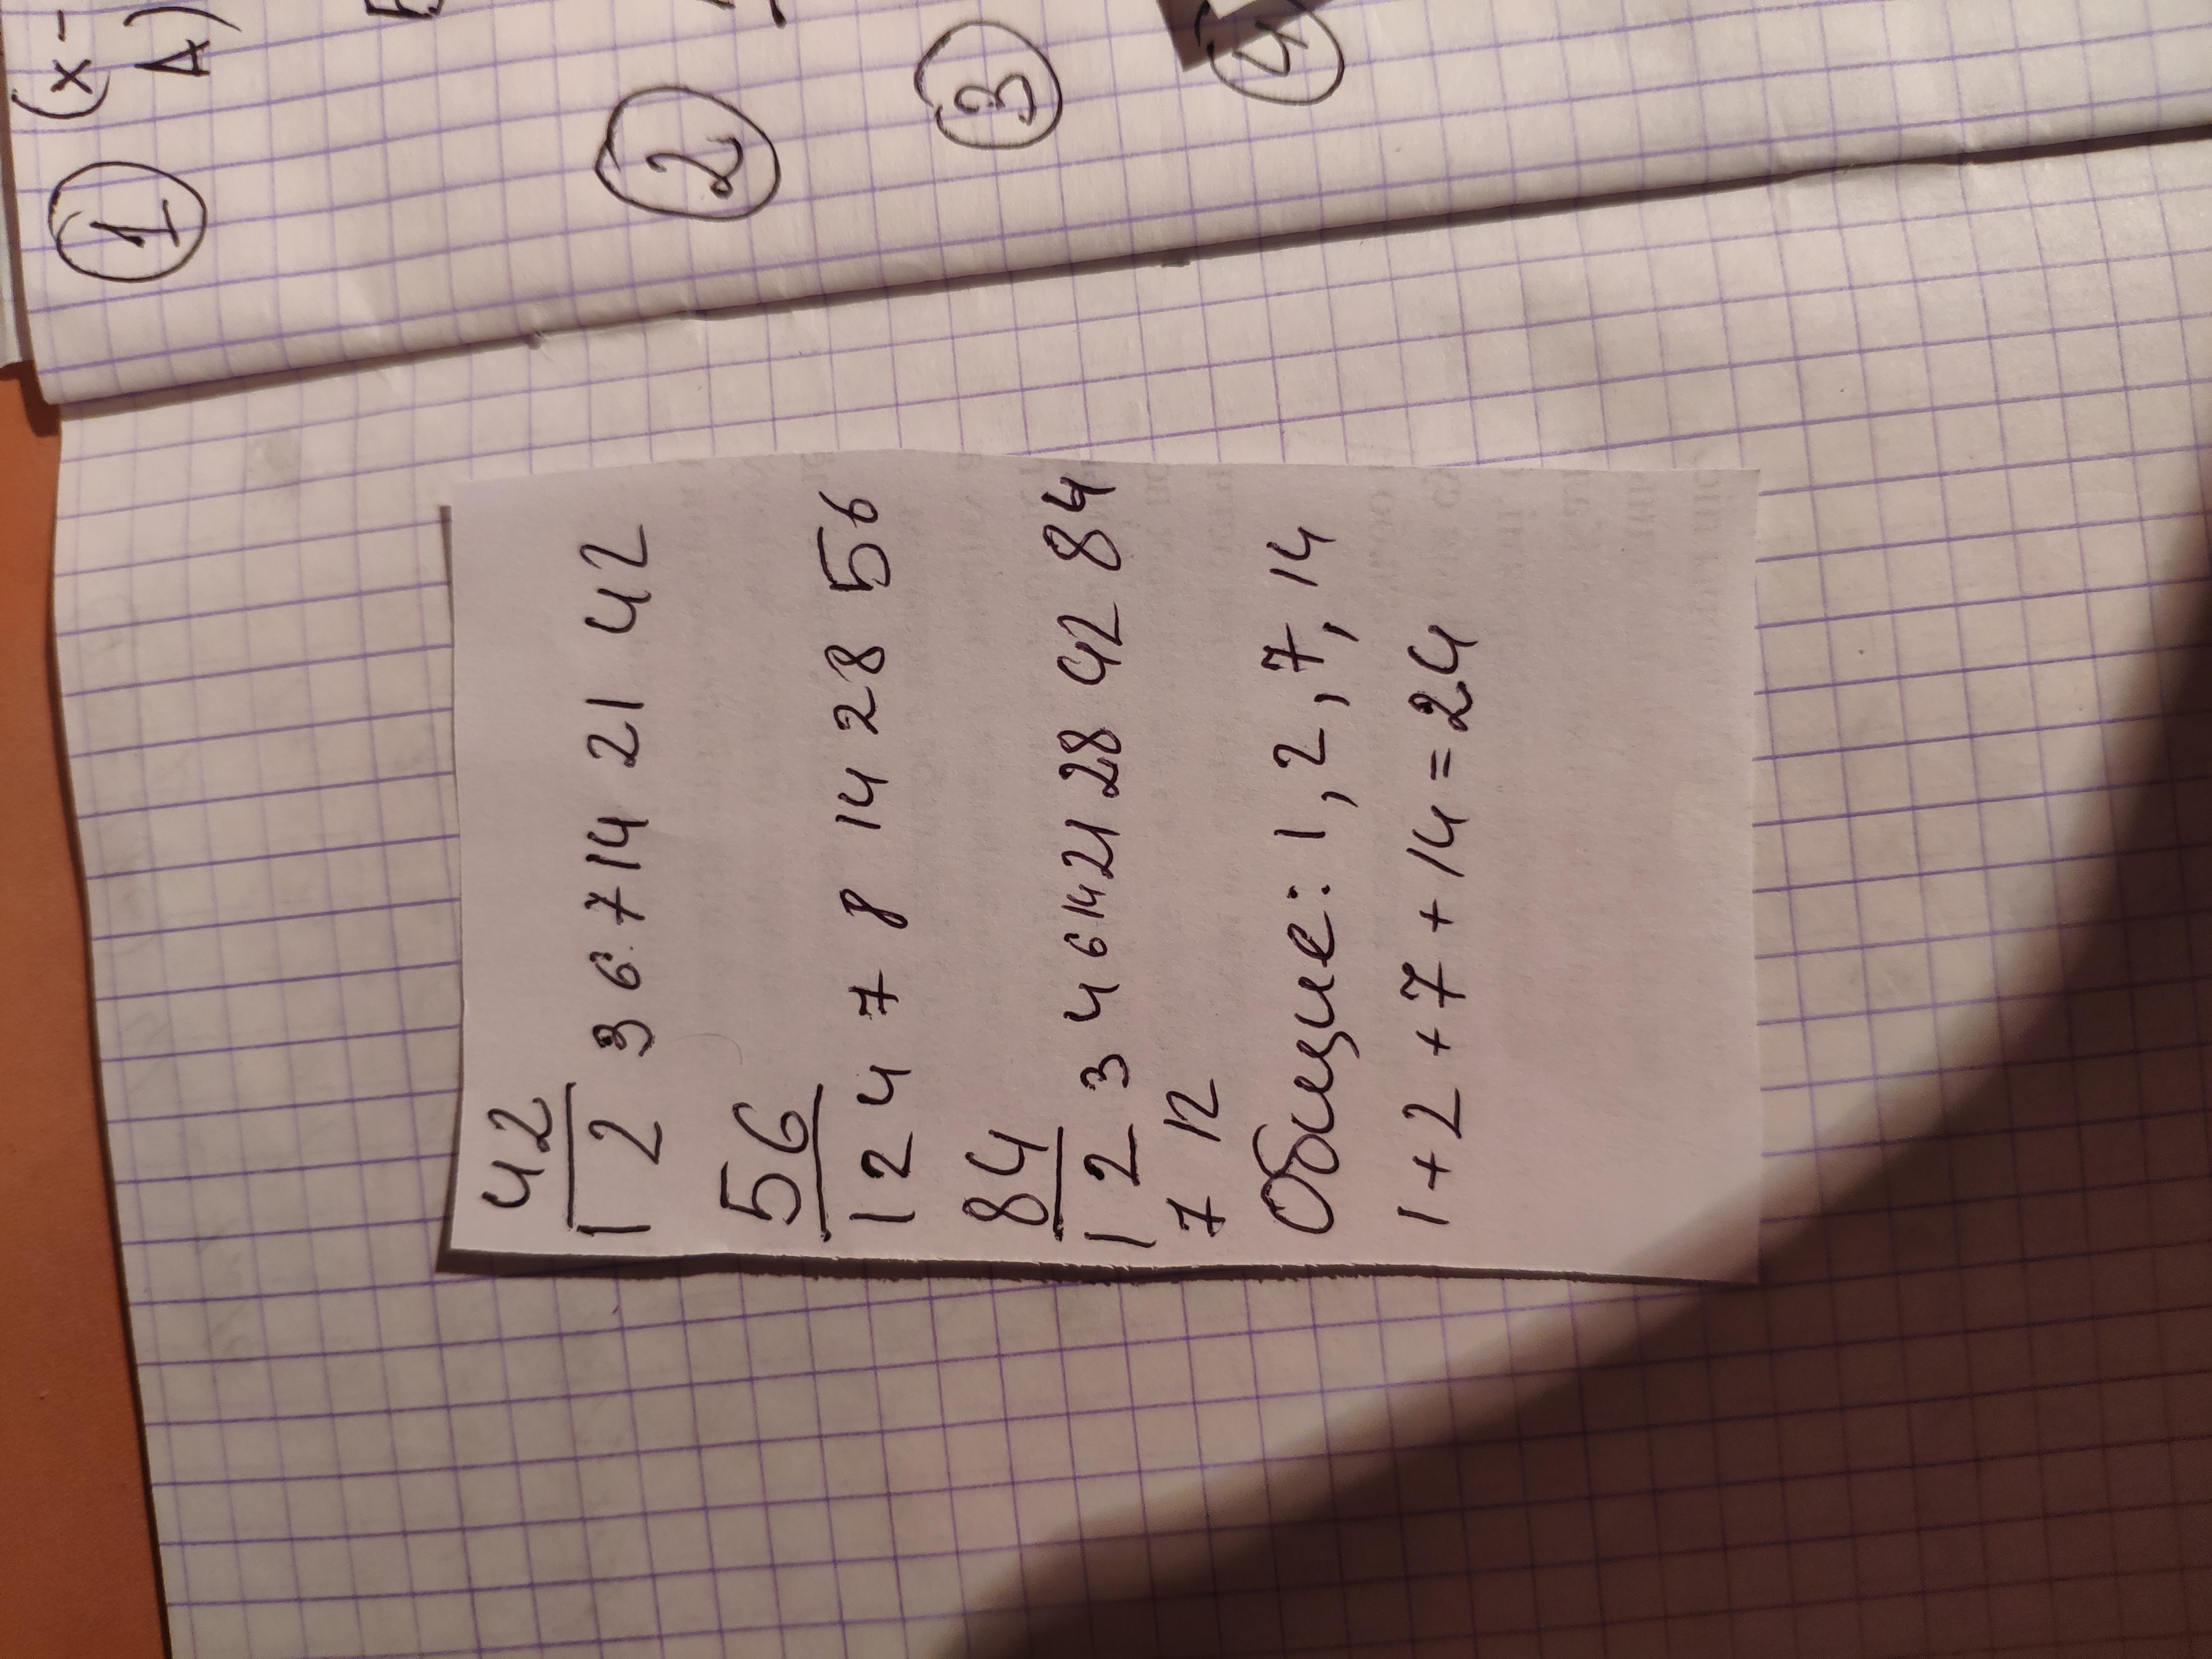 1 (x-
A)
2
3
4
42
1 2 3 6 7 14 21 42
56
1 2 4 7 8 14 28 56
84
1 2 3 4 6 14 21 28 42 84
7 12
Общие: 1, 2, 7, 14
1 + 2 + 7 + 14 = 24